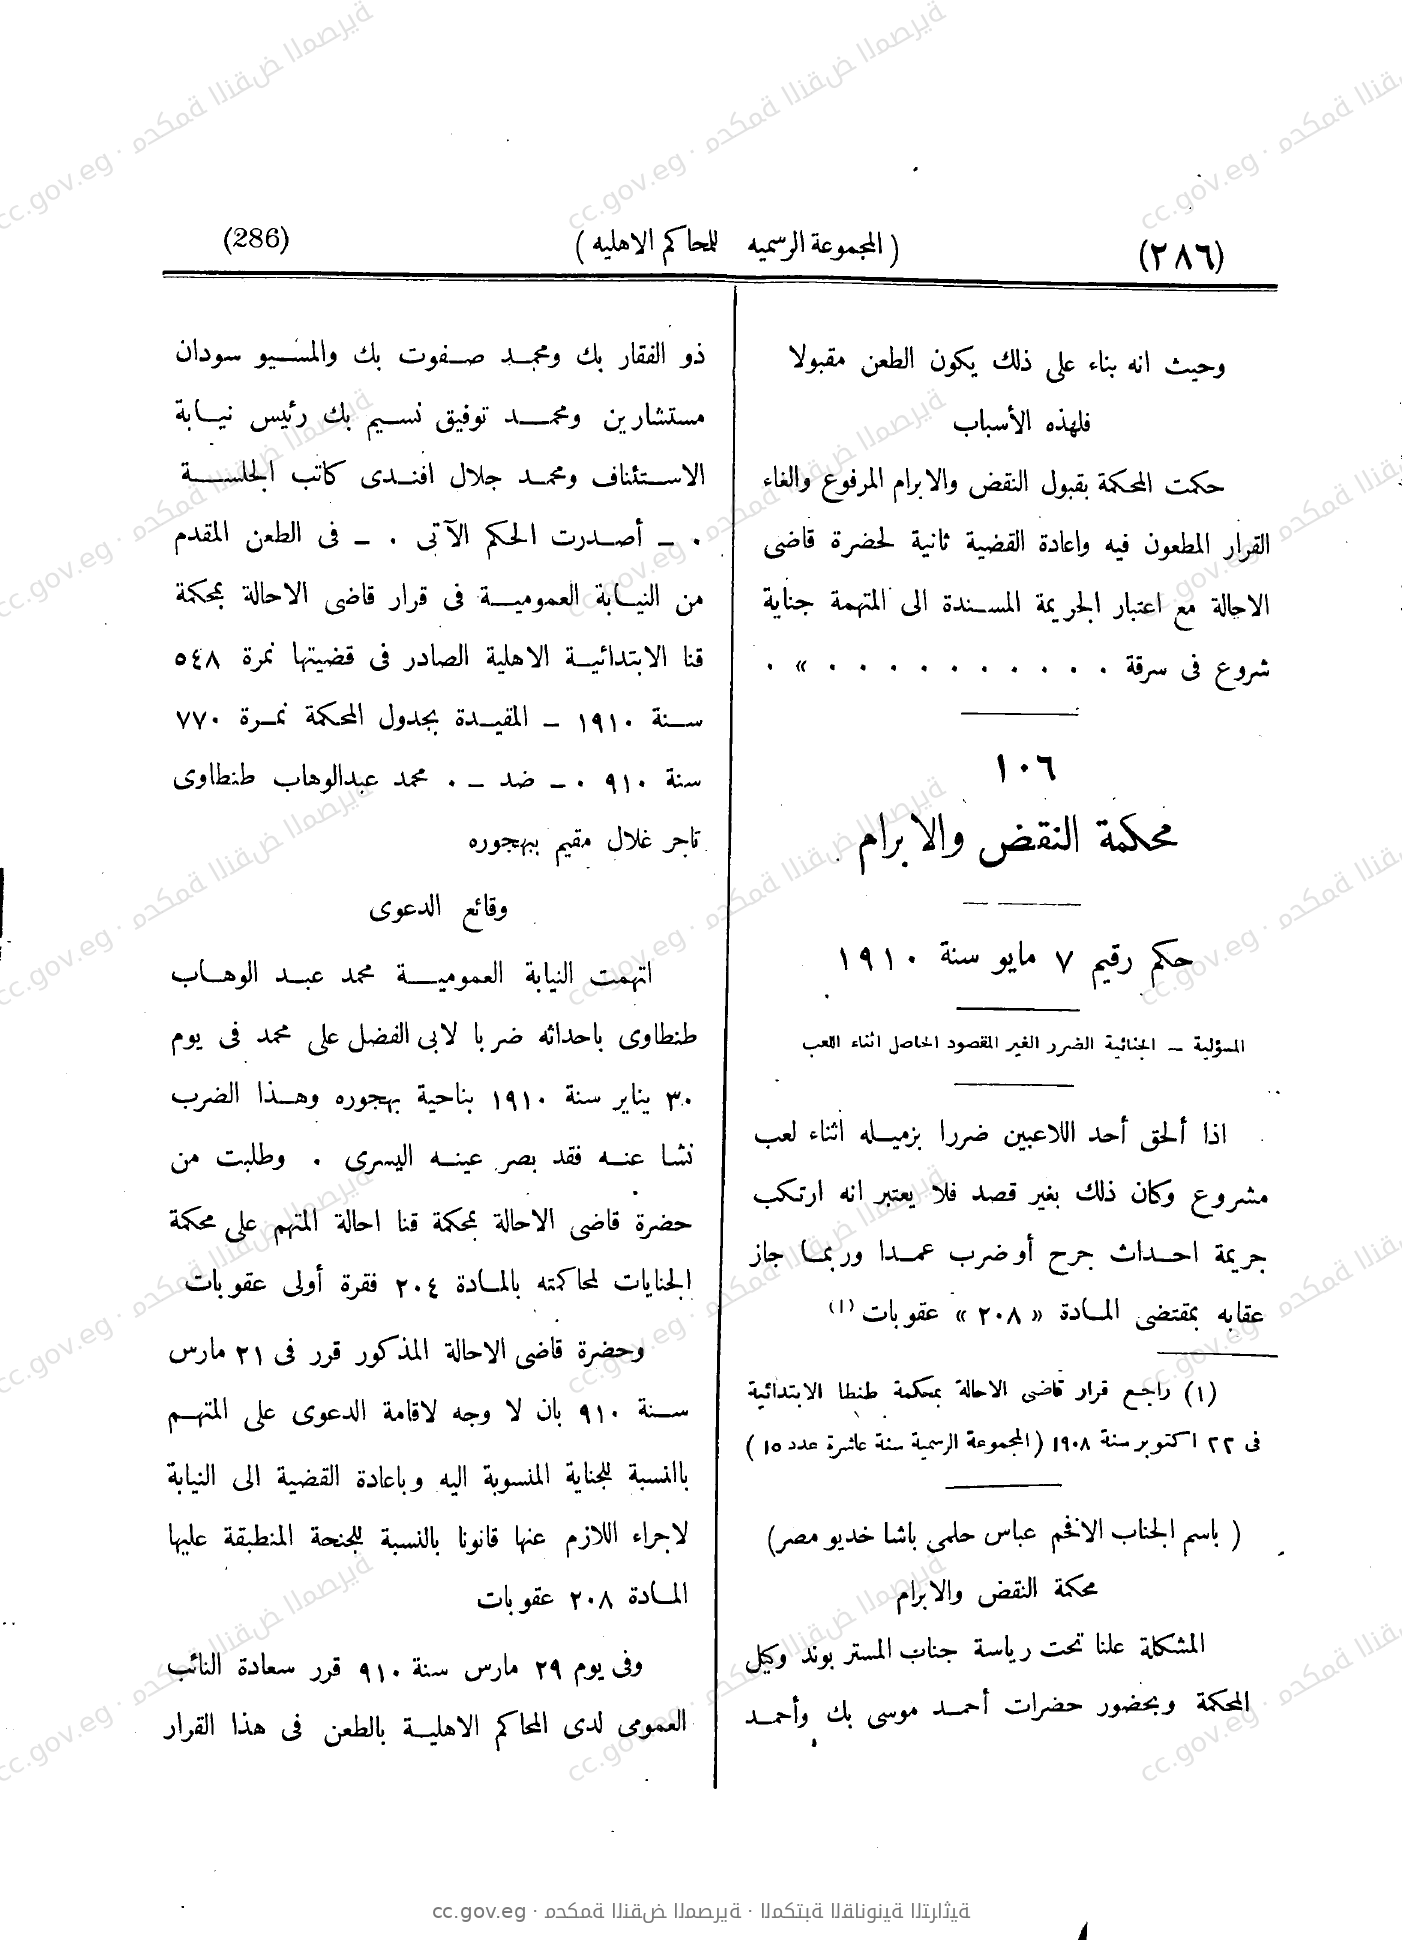 (٢٨٦)
( المجموعة الرسميه للمحاكم الاهليه )
(286)
وحيث انه بناء على ذلك يكون الطعن مقبولا
فلهذه الأسباب
حكمت المحكمة بقبول النقض والابرام المرفوع والغاء
القرار المطعون فيه واعادة القضية ثانية لحضرة قاضى
الاحالة مع اعتبار الجريمة المسندة الى المتهمة جناية
شروع فى سرقة . . . . . . . . . . » .
١٠٦
محكمة النقض والابرام
حكم رقيم ٧ مايو سنة ١٩١٠
المسؤلية – الجنائية الضرر الغير المقصود الحاصل اثناء اللعب
اذا ألحق أحد اللاعبين ضررا بزميله اثناء لعب
مشروع وكان ذلك بغير قصد فلا يعتبر انه ارتكب
جريمة احداث جرح أو ضرب عمدا وربما جاز
عقابه بمقتضى المادة « ٢٠٨ » عقوبات (١)
(١) راجع قرار قاضى الاحالة بمحكمة طنطا الابتدائية
فى ٢٢ اكتوبر سنة ١٩٠٨ ( المجموعة الرسمية سنة عاشرة عدد ١٥ )
( باسم الجناب الافخم عباس حلمى باشا خديو مصر )
محكمة النقض والابرام
المشكلة علنا تحت رياسة جناب المستر بوند وكيل
المحكمة وبحضور حضرات أحمد موسى بك وأحمد
ذو الفقار بك ومحمد صفوت بك والمسيو سودان
مستشارين ومحمد توفيق نسيم بك رئيس نيابة
الاستئناف ومحمد جلال افندى كاتب الجلسة
. – أصدرت الحكم الآتى . – فى الطعن المقدم
من النيابة العمومية فى قرار قاضى الاحالة بمحكمة
قنا الابتدائية الاهلية الصادر فى قضيتها نمرة ٥٤٨
سنة ١٩١٠ – المقيدة بجدول المحكمة نمرة ٧٧٠
سنة ٩١٠ . – ضد – . محمد عبدالوهاب طنطاوى
تاجر غلال مقيم ببهجوره
وقائع الدعوى
اتهمت النيابة العمومية محمد عبد الوهاب
طنطاوى باحداثه ضربا لابى الفضل على محمد فى يوم
٣٠ يناير سنة ١٩١٠ بناحية بهجوره وهذا الضرب
نشا عنه فقد بصر عينه اليسرى . وطلبت من
حضرة قاضى الاحالة بمحكمة قنا احالة المتهم على محكمة
الجنايات لمحاكمته بالمادة ٢٠٤ فقرة أولى عقوبات
وحضرة قاضى الاحالة المذكور قرر فى ٢١ مارس
سنة ٩١٠ بان لا وجه لاقامة الدعوى على المتهم
باالنسبة للجناية المنسوبة اليه وباعادة القضية الى النيابة
لاجراء اللازم عنها قانونا بالنسبة للجنحة المنطبقة عليها
المادة ٢٠٨ عقوبات
وفى يوم ٢٩ مارس سنة ٩١٠ قرر سعادة النائب
العمومى لدى المحاكم الاهلية بالطعن فى هذا القرار
cc.gov.eg · محكمة النقض المصرية · المكتبة القانونية التراثية